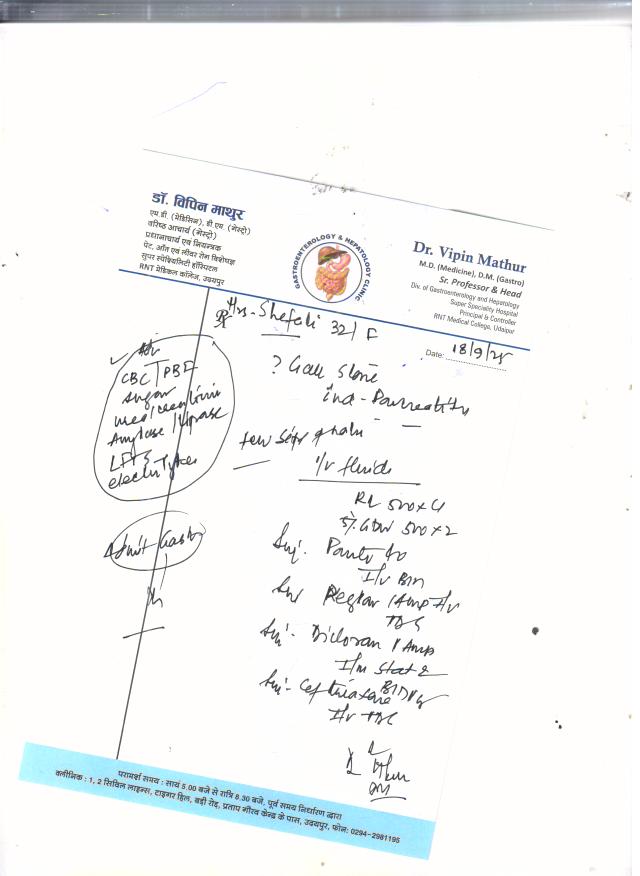 डॉ. विपिन माथुर
एम.डी. (मेडिसिन), डी.एम. (गेस्ट्रो)
वरिष्ठ आचार्य (गेस्ट्रो)
प्रधानाचार्य एवं नियन्त्रक
पेट, आँत एवं लीवर रोग विशेषज्ञ
सुपर स्पेशियलिटी हॉस्पिटल
RNT मेडिकल कॉलेज, उदयपुर
GASTROENTEROLOGY & HEPATOLOGY CLINIC
Dr. Vipin Mathur
M.D. (Medicine), D.M. (Gastro)
Sr. Professor & Head
Div. of Gastroenterology and Hepatology
Super Speciality Hospital
Principal & Controller
RNT Medical College, Udaipur
Date: 18/9/25
Mrs. Shefali 32/F
Adv
CBC / PBF
Sugar
Urea/creatinine
Amylase/Lipase
LFTs
electrolytes
Admit Gastro
? Gall Stone
ind. Pancreatitis
few sips orally
I/v fluids
RL 500 x 4
5% 500 x 2
Inj. Pantop 40
I/v
Inj Reglan 1 Amp I/v
TDS
Inj. Dicloran 1 Amp
I/m Stat &
Inj. Ceftriaxone
I/v
परामर्श समय : सायं 5.00 बजे से रात्रि 8.30 बजे, पूर्व समय निर्धारण द्वारा
क्लीनिक : 1, 2 सिविल लाइन्स, टाइगर हिल, बड़ी रोड़, प्रताप गौरव केन्द्र के पास, उदयपुर, फोन: 0294-2981195